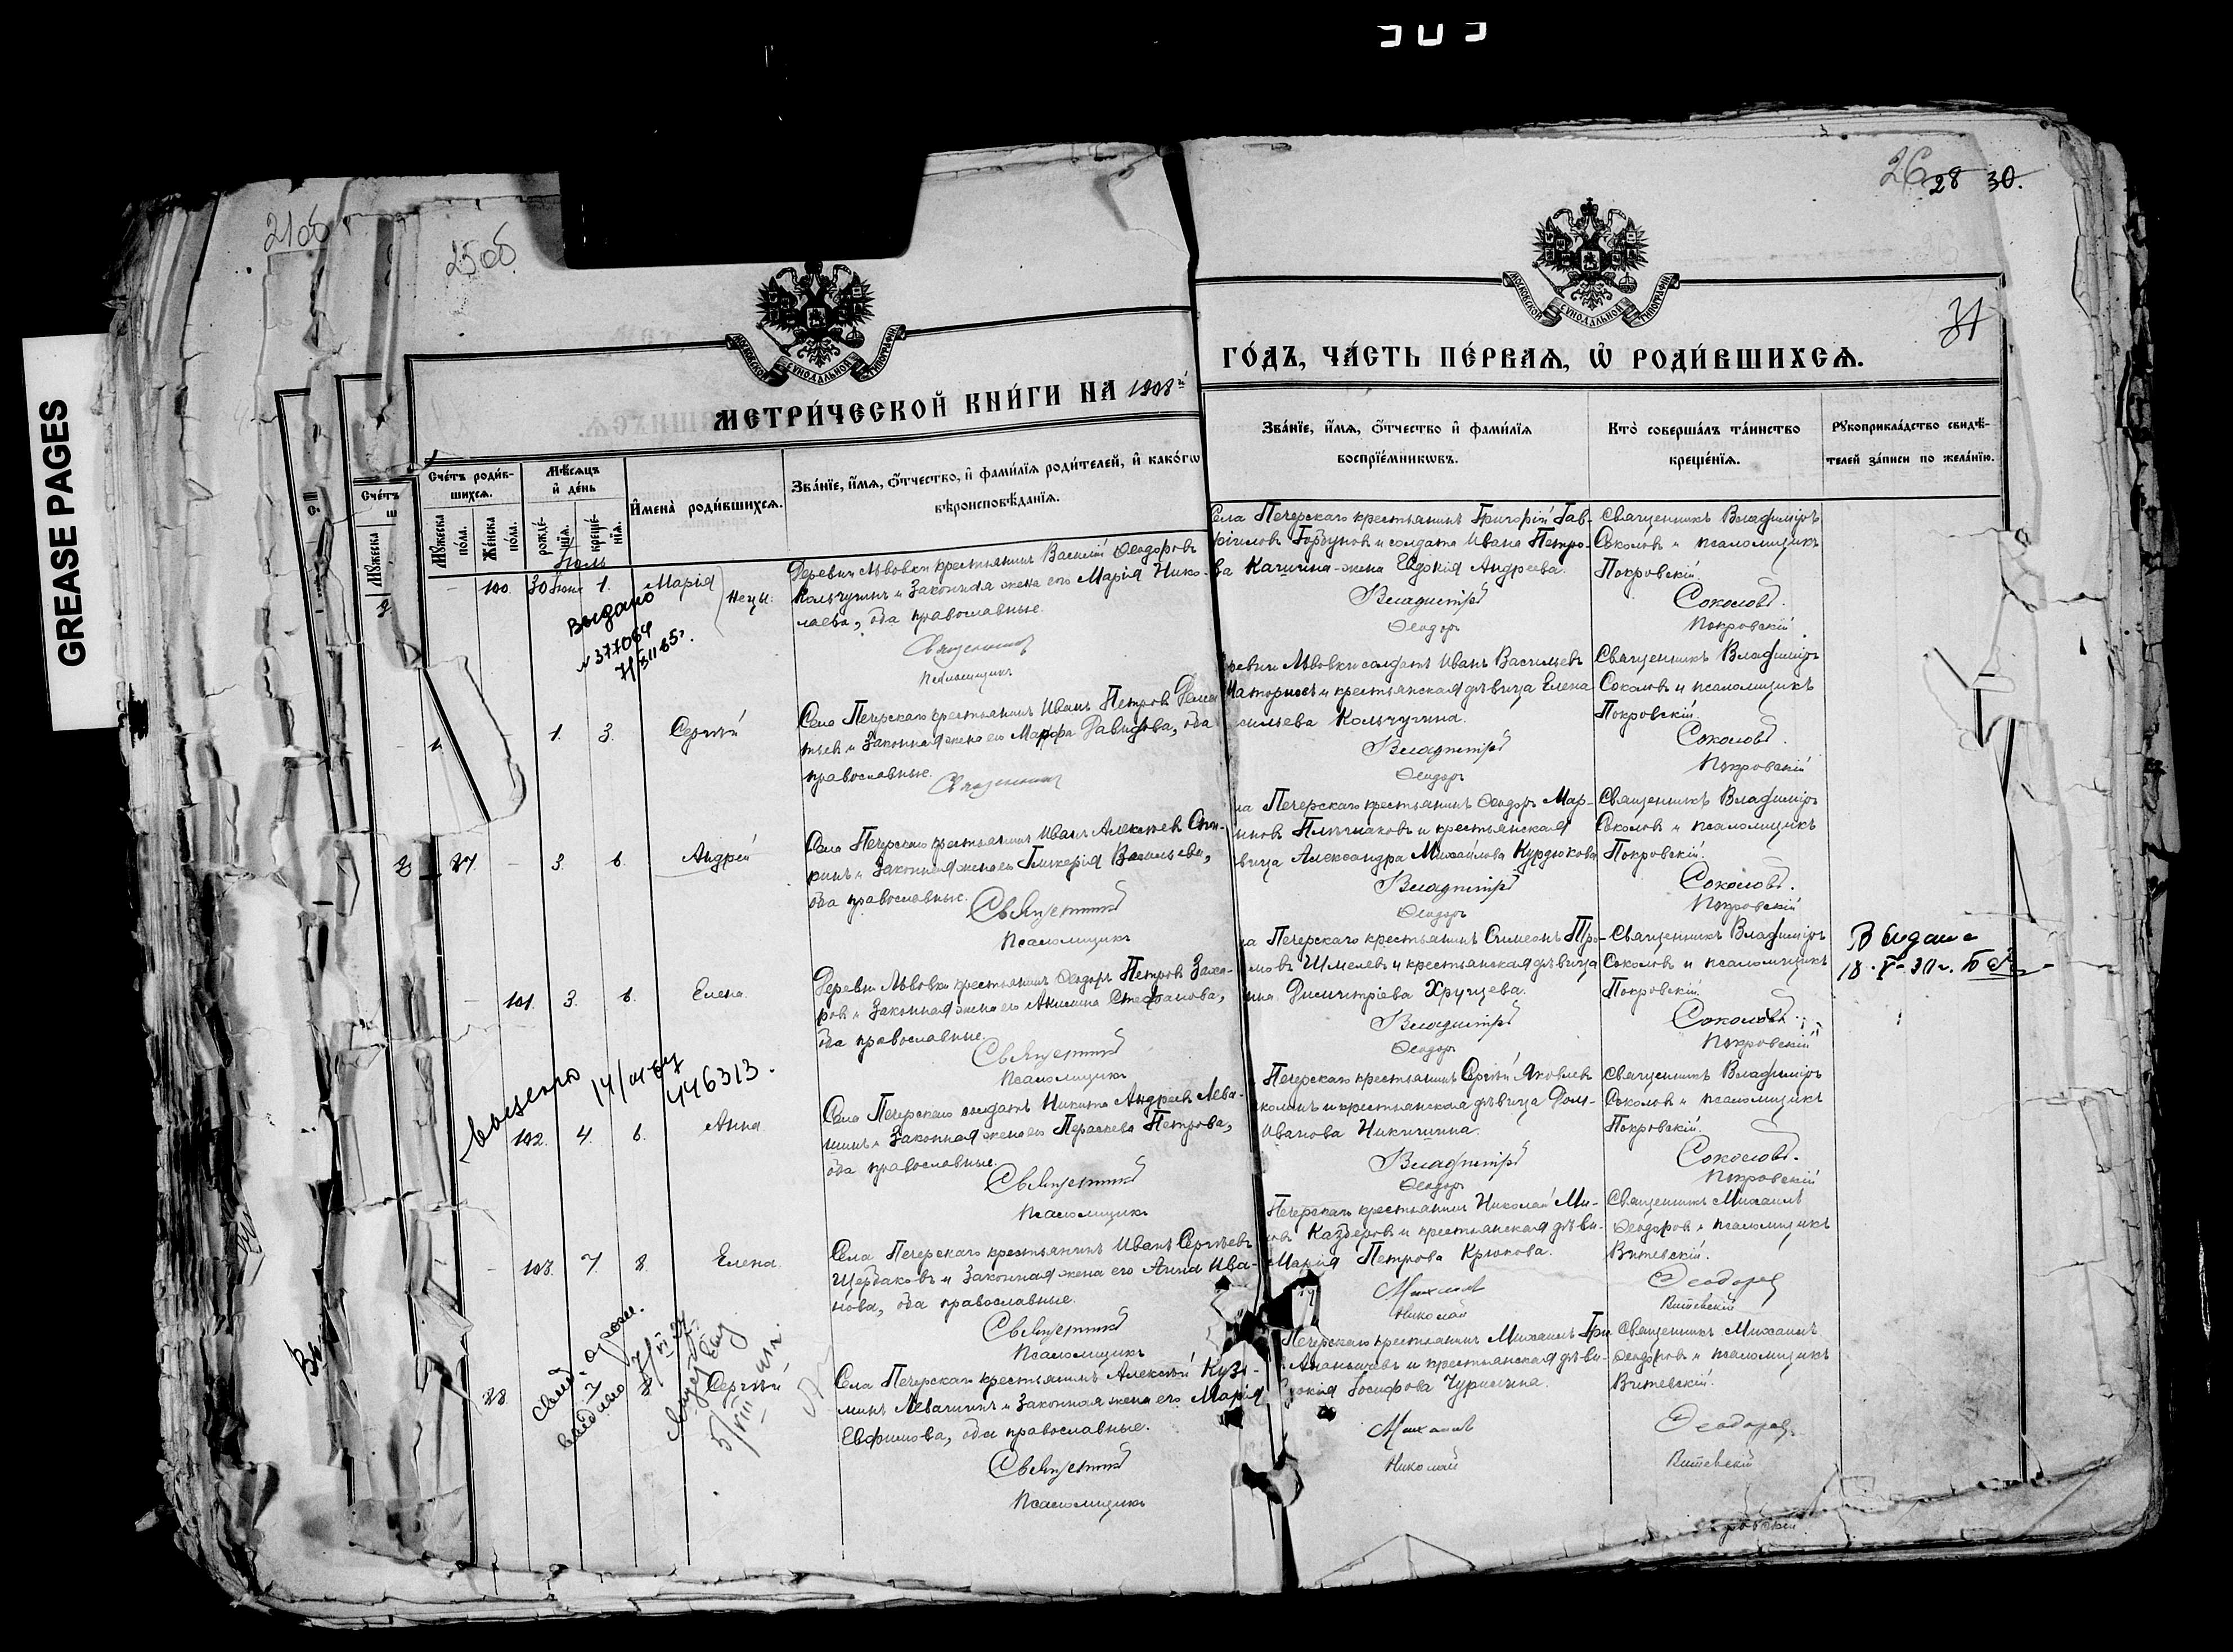 GREASE PAGES
21об
25об.
26 28 30.
31
МОСКОВСКОЙ СѴНОДАЛЬНОЙ ТИПОГРАФІИ
МОСКОВСКОЙ СѴНОДАЛЬНОЙ ТИПОГРАФІИ
МЕТРИ́ЧЕСКОЙ КНИ́ГИ НА 1908й
ГО́ДЪ, ЧА́СТЬ ПЕ́РВАѦ, Ѿ РОДИ́ВШИХСѦ.
Сче́тъ роди́в-
шихсѧ.
Мꙋ́жеска по́ла.
Же́нска по́ла.
Мѣ́сѧцъ
и҆ де́нь
рожде́-
нїѧ.
креще́-
нїѧ.
И҆мена̀ роди́вшихсѧ.
Зва́нїе, и҆́мѧ, ѻ҆́тчество, и҆ фами́лїѧ роди́телей, и҆ како́гѡ
вѣроисповѣ́данїѧ.
Зва́нїе, и҆́мѧ, ѻ҆́тчество и҆ фами́лїѧ
воспрїе́мникѡвъ.
Кто̀ соверша́лъ та́инство
креще́нїѧ.
Рꙋкоприкла́дство свидѣ́-
телей за́писи по жела́нїю.
Іюль
100. 30 Іюня 1. Марія
Деревни Львовки крестьянинъ Василій Ѳеодоровъ
Кольчугинъ и законная жена его Марія Нико-
лаева, оба православные.
Священникъ
Псаломщикъ
Села Печерскаго крестьянинъ Григорій Гав-
ріиловъ Горбуновъ и солдата Ивана Петро-
ва Качигина жена Евдокія Андреева.
Владиміръ
Ѳеодоръ
Священникъ Владиміръ
Соколовъ и псаломщикъ
Покровскій.
Соколовъ.
Покровскій
Выдано
№ 377064
1. 3. Сергѣй
Села Печерскаго крестьянинъ Иванъ Петровъ
и законная жена его Марфа Давидова, оба
православные.
Священникъ
Деревни Львовки солдатъ Иванъ Васильевъ
и крестьянская дѣвица Елена
Васильева Кольчугина.
Владиміръ
Ѳеодоръ
Священникъ Владиміръ
Соколовъ и псаломщикъ
Покровскій.
Соколовъ.
Покровскій
87. - 3. 6. Андрей
Села Печерскаго крестьянинъ Иванъ Алексѣевъ
и законная жена его Гликерія Васильева,
оба православные.
Священникъ
Псаломщикъ
Печерскаго крестьянинъ Ѳеодоръ Мар-
и крестьянская
Александра Михайлова Курдюкова
Владиміръ
Ѳеодоръ
Священникъ Владиміръ
Соколовъ и псаломщикъ
Покровскій.
Соколовъ.
Покровскій
101. 3. 6. Елена
Деревни Львовки крестьянинъ Ѳеодоръ Петровъ Заха-
ровъ и законная жена его Анисия Стефанова,
оба православные.
Священникъ
Псаломщикъ
Печерскаго крестьянинъ Симеонъ Про-
Шмелевъ и крестьянская дѣвица
Димитріева Хрущева.
Владиміръ
Ѳеодоръ
Священникъ Владиміръ
Соколовъ и псаломщикъ
Покровскій
Соколовъ.
Покровскій
Выдана
18-V-30г.
446313.
102. 4. 6. Анна
Села Печерскаго солдатъ Никита Андреевъ Лева-
шинъ и законная жена его Параскева Петрова,
оба православные.
Священникъ
Псаломщикъ
Печерскаго крестьянинъ Сергѣй Яковлевъ
и крестьянская дѣвица
Иванова Никишина.
Владиміръ
Ѳеодоръ
Священникъ Владиміръ
Соколовъ и псаломщикъ
Покровскій.
Соколовъ.
Покровскій
103. 7. 8. Елена
Села Печерскаго крестьянинъ Иванъ Сергѣевъ
Щербаковъ и законная жена его Анна Ива-
нова, оба православные.
Священникъ
Псаломщикъ
Печерскаго крестьянинъ Николай Ми-
и крестьянская дѣви-
Марія Петрова Крюкова.
Михаилъ
Николай
Священникъ Михаилъ
Ѳеодоровъ и псаломщикъ
Витевскій.
Ѳеодоровъ
Витевскій
88. Сергѣй
Села Печерскаго крестьянинъ Алексѣй Кузь-
минъ Левашинъ и законная жена его Марія
Евфимова, оба православные.
Священникъ
Псаломщикъ
Печерскаго крестьянинъ Михаилъ Гри-
Ананьичевъ и крестьянская дѣви-
Іосифова Чурикина.
Михаилъ
Николай
Священникъ Михаилъ
Ѳеодоровъ и псаломщикъ
Витевскій.
Ѳеодоровъ
Витевскій